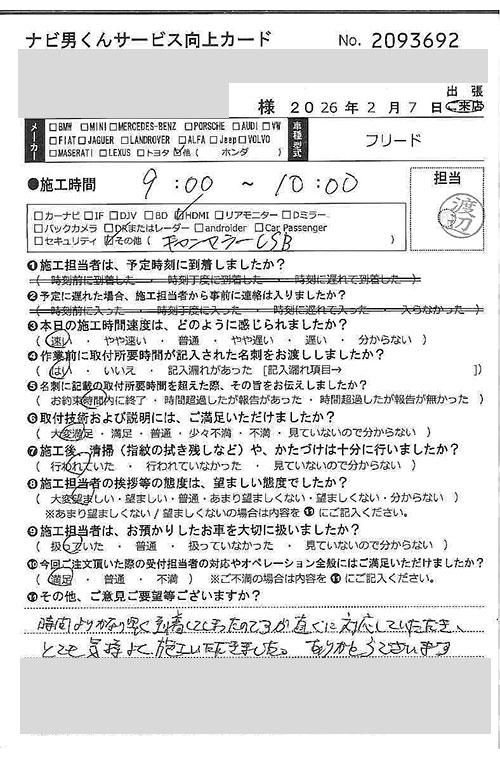 ナビ男くんサービス向上カード No. 2093692
様 2026年2月7日 出張・ご来店
メーカー □BMW □MINI □MERCEDES-BENZ □PORSCHE □AUDI □VW
□FIAT □JAGUER □LANDROVER □ALFA □Jeep □VOLVO
□MASERATI □LEXUS □トヨタ ☑他 ( ホンダ )
車種型式 フリード
●施工時間 9:00 ~ 10:00
担当 渡辺
□カーナビ □IF □DJV □BD ☑HDMI □リアモニター □Dミラー
□バックカメラ □DRまたはレーダー □androider □Car Passenger
□セキュリティ ☑その他 ( USB )
❶施工担当者は、予定時刻に到着しましたか?
( 時刻前に到着した ・ 時刻丁度に到着した ・ 時刻に遅れて到着した )
❷予定に遅れた場合、施工担当者から事前に連絡は入りましたか?
( 時刻前に入った ・ 時刻丁度に入った ・ 時刻に遅れて入った ・ 入らなかった )
❸本日の施工時間速度は、どのように感じられましたか?
( 速い ・ やや速い ・ 普通 ・ やや遅い ・ 遅い ・ 分からない )
❹作業前に取付所要時間が記入された名刺をお渡ししましたか?
( はい ・ いいえ ・ 記入漏れがあった [記入漏れ項目→ ])
❺名刺に記載の取付所要時間を超えた際、その旨をお伝えしましたか?
( お約束時間内に終了 ・ 時間超過したが報告があった ・ 時間超過したが報告が無かった )
❻取付技術および説明には、ご満足いただけましたか?
( 大変満足 ・ 満足 ・ 普通 ・ 少々不満 ・ 不満 ・ 見ていないので分からない )
❼施工後、清掃（指紋の拭き残しなど）や、かたづけは十分に行いましたか?
( 行われていた ・ 行われていなかった ・ 見ていないので分からない )
❽施工担当者の挨拶等の態度は、望ましい態度でしたか?
( 大変望ましい・望ましい・普通・あまり望ましくない・望ましくない・分からない )
※あまり望ましくない／望ましくないの場合は内容を⓫にご記入ください。
❾施工担当者は、お預かりしたお車を大切に扱いましたか?
( 扱っていた ・ 普通 ・ 扱っていなかった ・ 見ていないので分からない )
❿今回ご注文頂いた際の受付担当者の対応やオペレーション全般にはご満足いただけましたか?
( 満足 ・ 普通 ・ 不満 ) ※ご不満の場合は内容を⓫にご記入ください。
⓫その他、ご意見ご要望等ございますか?
時間よりかなり早く到着してしまったのですが直ぐに対応していただき、
とても気持よく施工いただきました。ありがとうございます